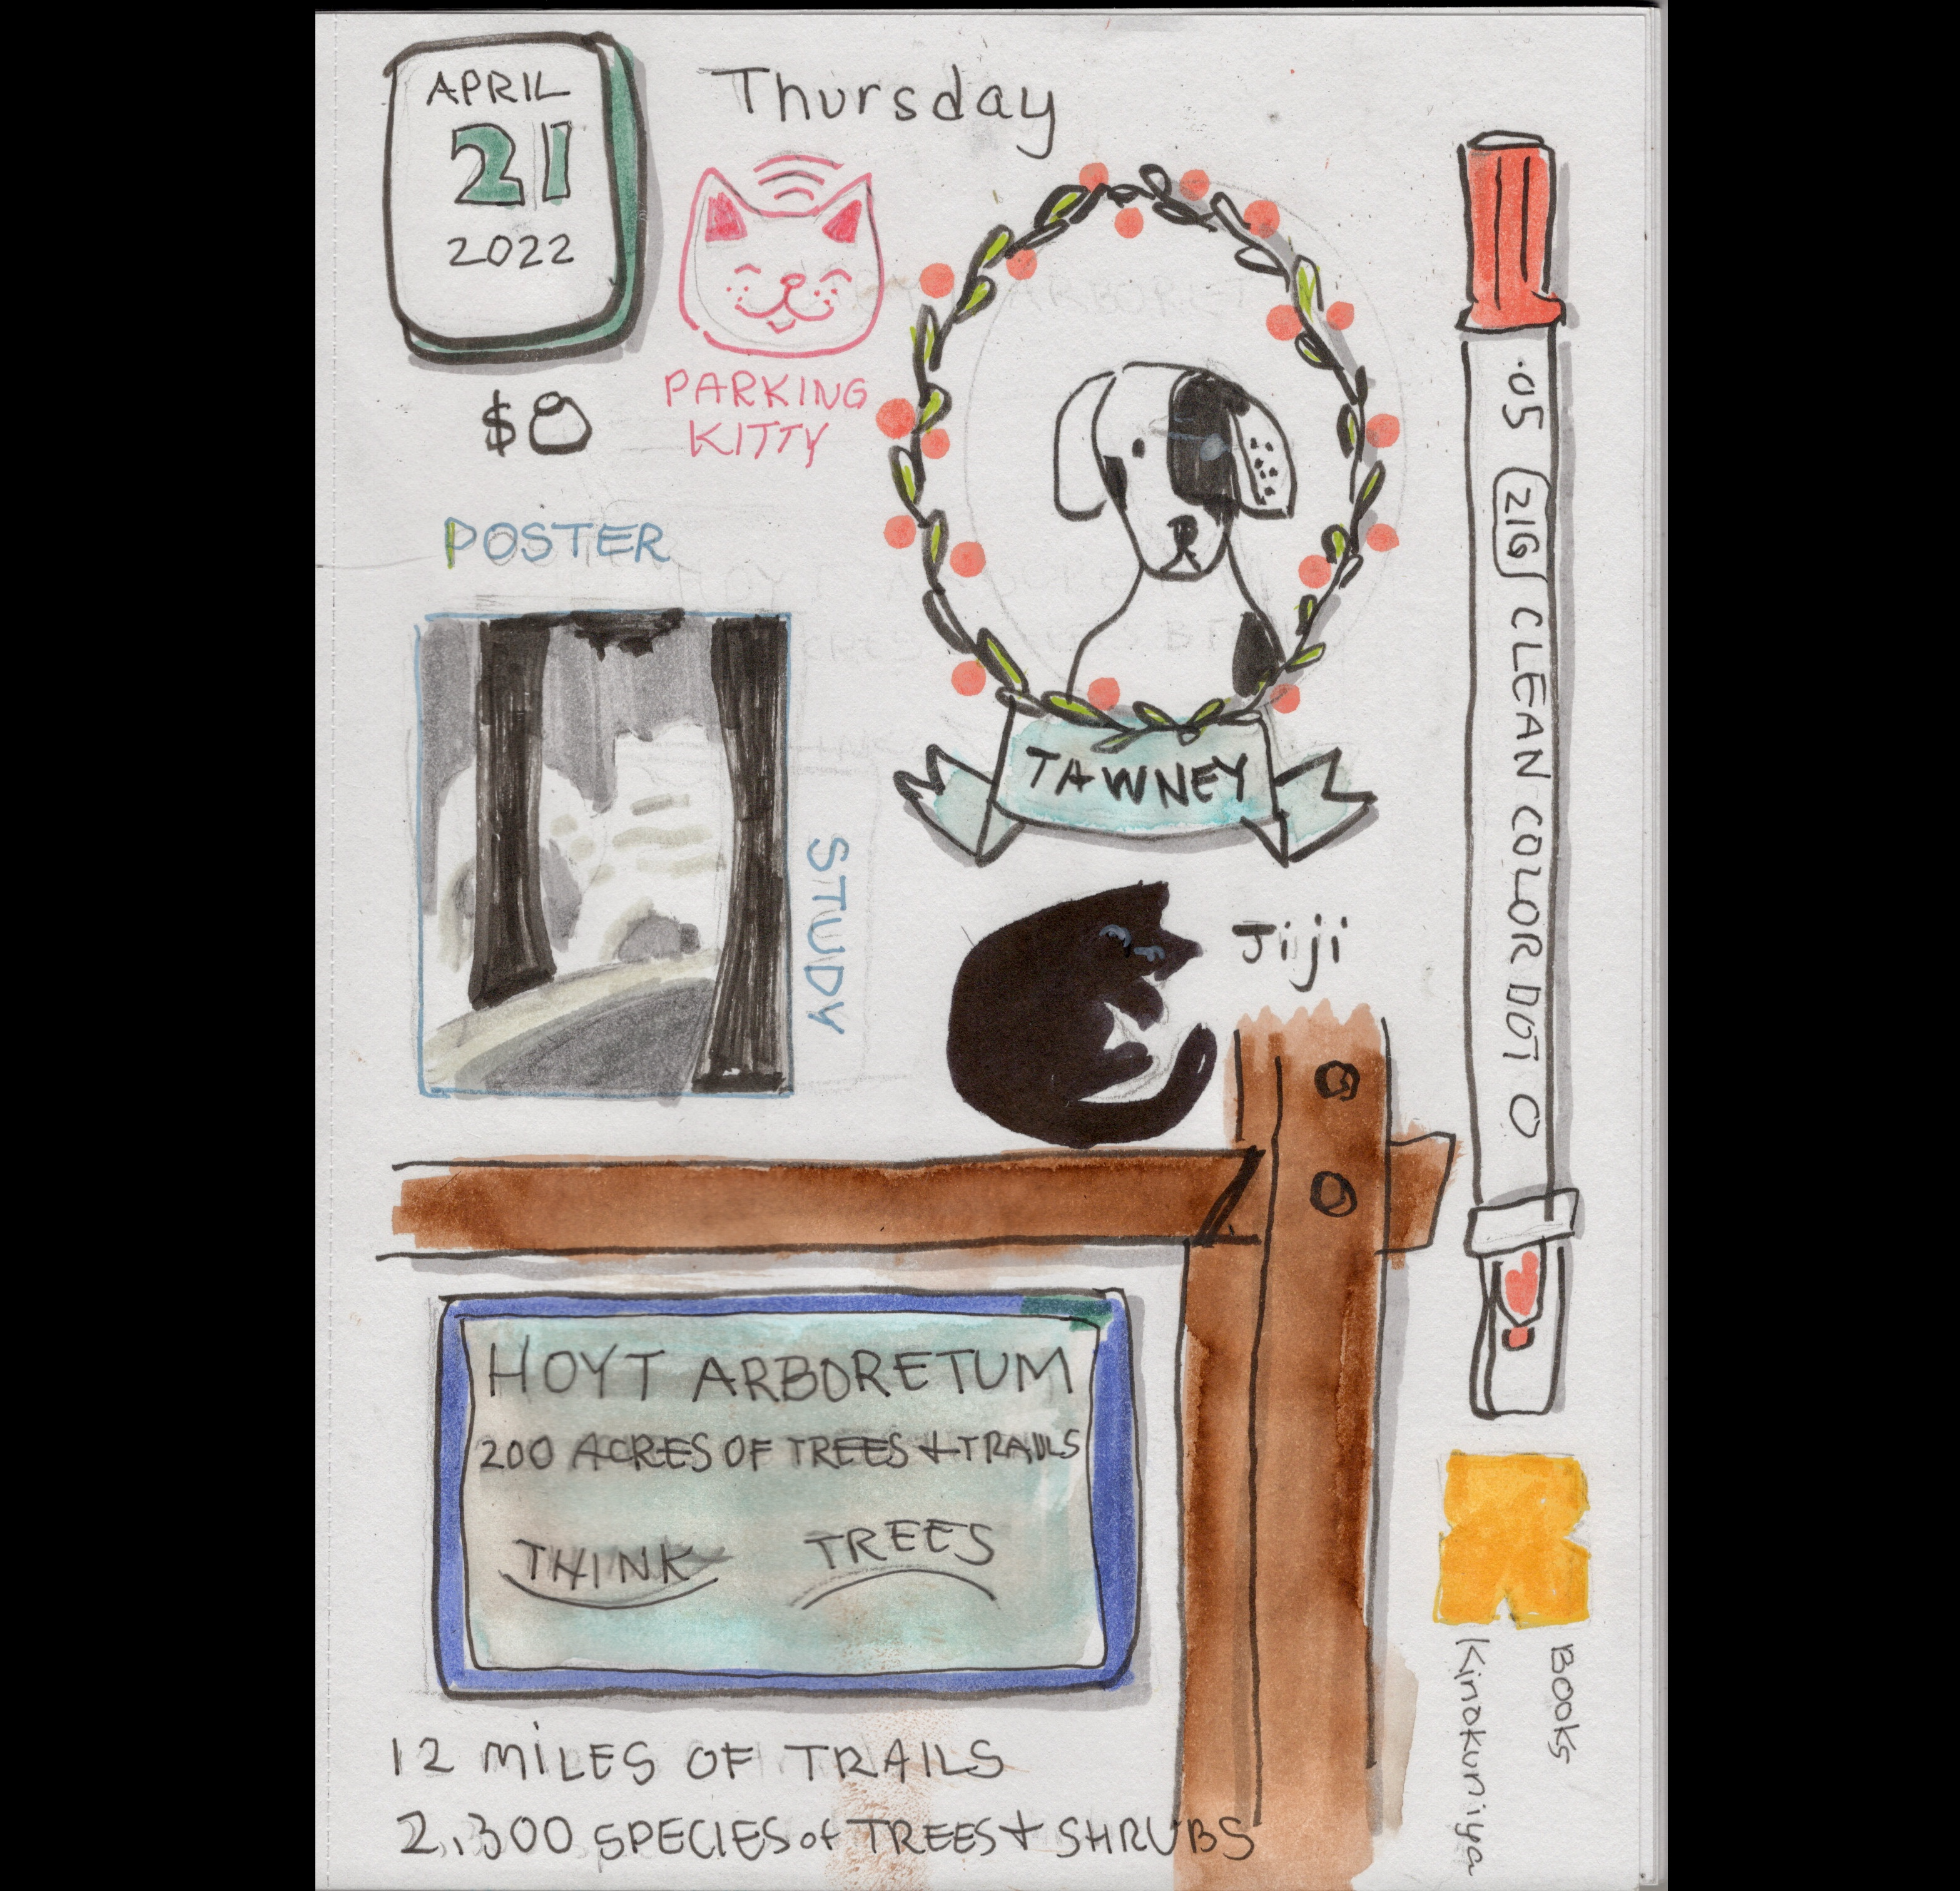 APRIL
21
2022
Thursday
$8
PARKING
KITTY
POSTER
STUDY
TAWNEY
Jiji
.05 216 CLEAN COLOR DOT
HOYT ARBORETUM
200 ACRES OF TREES + TRAILS
THINK TREES
12 MILES OF TRAILS
2,300 SPECIES of TREES + SHRUBS
Books
Kinokuniya